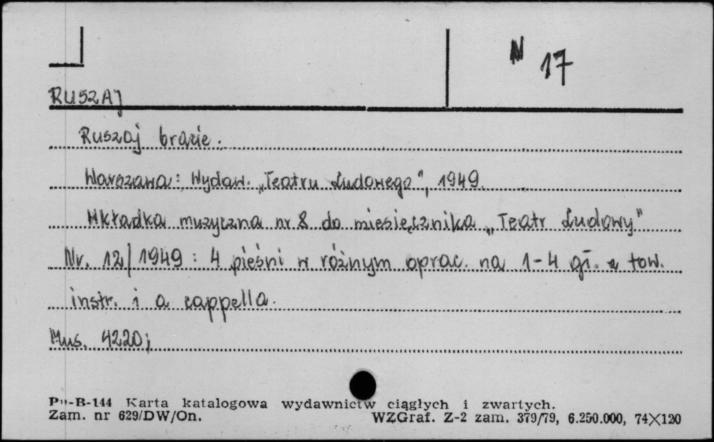 N 17
RUSZAJ
Ruszaj bracie.
Warszawa: Wydaw. „Teatru Ludowego", 1949.
Wkładka muzyczna nr 8 do miesięcznika „Teatr Ludowy"
Nr. 12/1949: 4 pieśni w różnym oprac. na 1-4 gł. z tow.
instr. i a cappella.
Mus. 4220;
Pu-B-144 Karta katalogowa wydawnictw ciągłych i zwartych.
Zam. nr 629/DW/On. WZGraf. Z-2 zam. 379/79, 6.250.000, 74×120